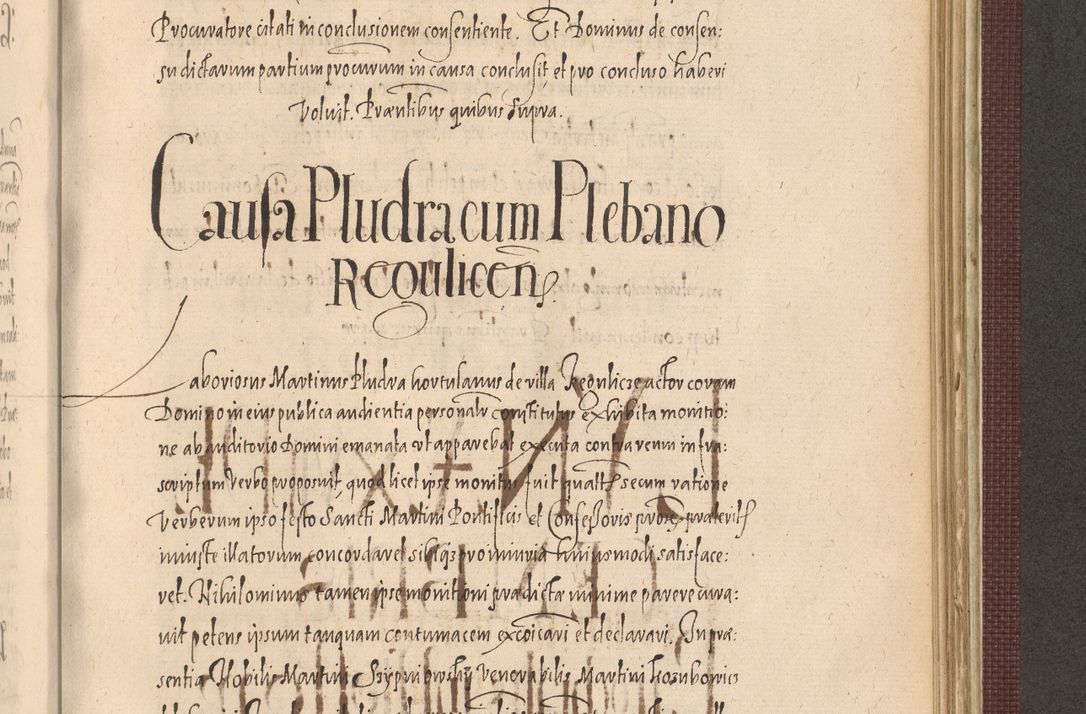 Procuratore citati in conclusionem consentiente. Et Dominus de consen:
su dictarum partium procurum in causa conclusit et pro concluso haberi
voluit. Præntibus quibus supra.
Causa Pludra cum Plebano
Regulicen̄
Laboriosus Martinus Pludra hortulanus de villa Regulicze actor coram
Domino in eius publica audientia personalr constitutus exhibita monitio:
ne ab auditorio Domini emanata ut apparebat executa contra reum infra:
scriptum verbo proposuit, quod licet ipse monitus fuit quatt secum ratione
Verberum ipso festo Sancti Martini Pontificis et Confessoris prox præterit
iniuste illatorum concordaret sibiq; pro iniuria huiusmodi satisface:
ret. Nihilominus tamen ipse monitioni prædictæ minime parere cura:
uit petens ipsum tanquam contumacem excoicari et declarari. In præ:
sentia Nobilis Martini Venerabilis Martini